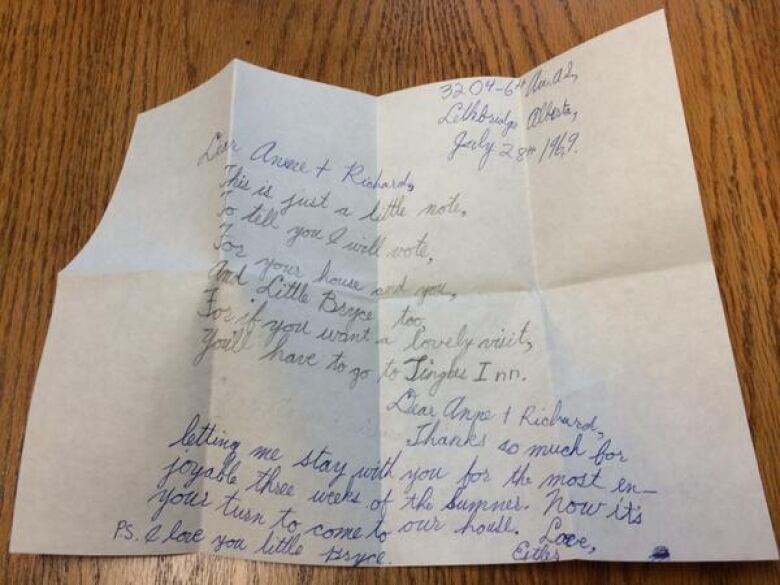 3204-6th Av. A S,
Lethbridge Alberta,
July 28th 1969.
Dear Anne + Richard,
This is just a little note,
To tell you I will vote,
For your house and you,
And Little Bryce too,
For if you want a lovely visit,
You'll have to go to Inn.
Dear Anne + Richard,
Thanks so much for
letting me stay with you for the most en-
joyable three weeks of the Summer. Now it's
your turn to come to our house. Love,
PS. I love you little Bryce.